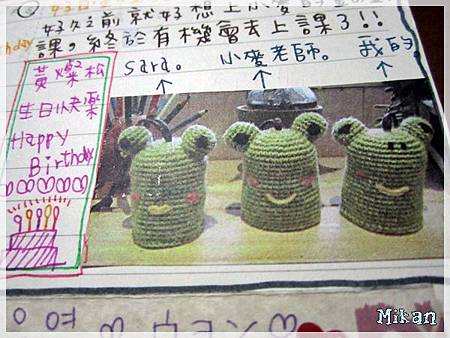 好久之前就好想上小
課。終於有機會去上課了!!
Sara。 小麥老師。 我的
黃燦松
生日快樂
Happy
Birthday
ウヨン
Mikan